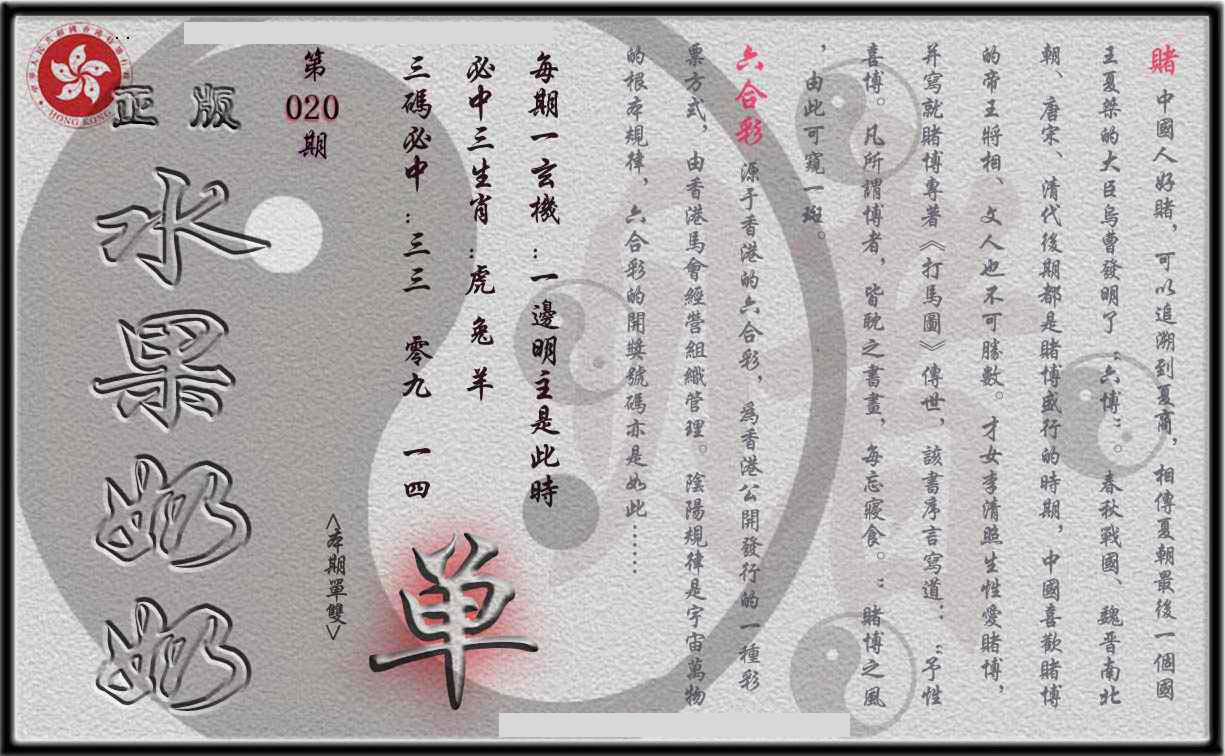 賭 中國人好賭，可以追溯到夏商，相傳夏朝最後一個國
王夏桀的大臣烏曹發明了“六博”。春秋戰國、魏晋南北
朝、唐宋、清代後期都是賭博盛行的時期，中國喜歡賭博
的帝王將相、文人也不可勝數。才女李清照生性愛賭博，
并寫就賭博專著《打馬圖》傳世，該書序言寫道：“予性
喜博。凡所謂博者，皆眈之書畫，每忘寢食。”賭博之風
，由此可窺一斑。
六合彩 源于香港的六合彩，為香港公開發行的一種彩
票方式，由香港馬會經營組織管理。陰陽規律是宇宙萬物
的根本規律，六合彩的開獎號碼亦是如此……
每期一玄機：一邊明主是此時
必中三生肖：虎 兔 羊
三碼必中：三三 零九 一四
單
<本期單雙>
第
020
期
正版
水果奶奶
HONG KONG